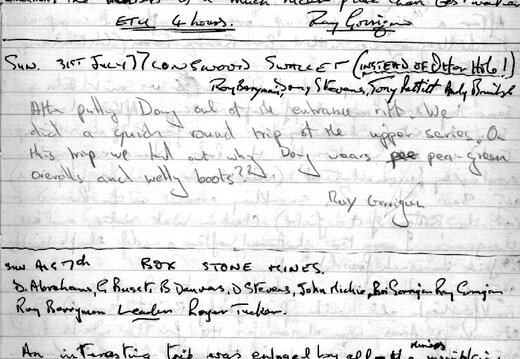 of a much nicer place than
ETU 4 hours. Ray Gorrigan
SUN. 31ST JULY 77 LONGWOOD SWALLET (INSTEAD OF Hole!)
Ray Berryman, Stevens, Tony Andy
After pulling Davy out of the entrance rift. We
did a quick round trip of the upper series. On
this trip we found out why Davy wears pea-green
overalls and welly boots??
Ray Gorrigan
SUN AUG 7th BOX STONE MINES.
D. Abrahams, G B Danvars, D Stevens, John Michie, Gorrigan Ray Gorrigan
Ray Berryman Leader Roger Tucker.
An interesting trip was enjoyed by all